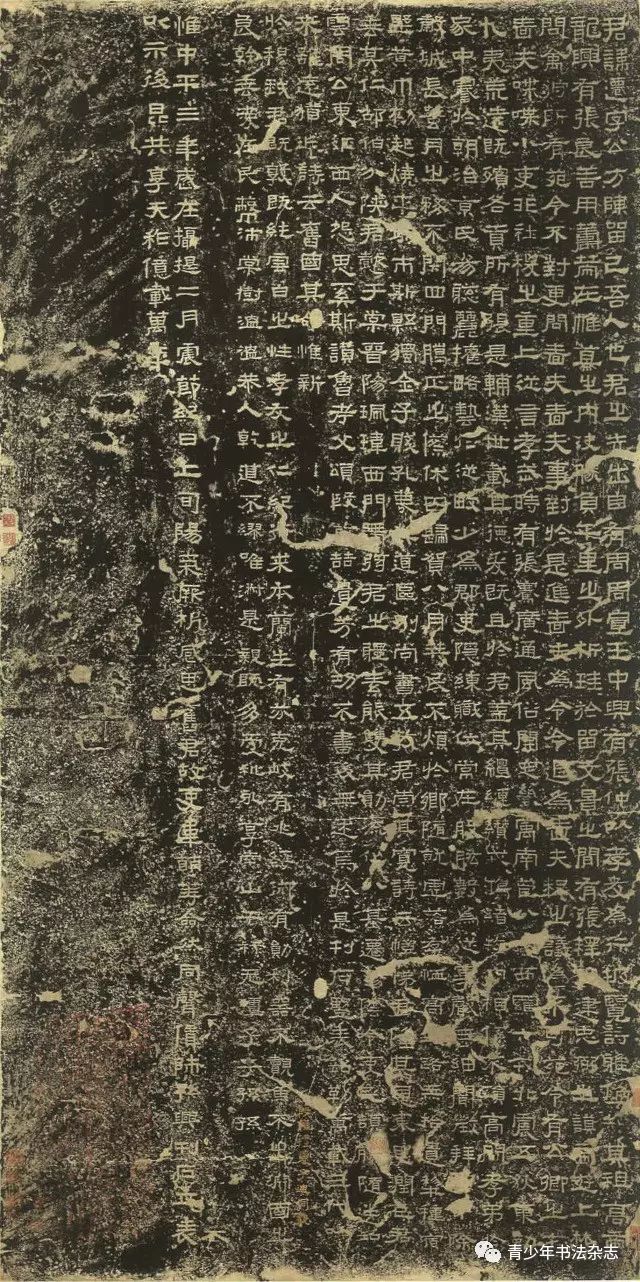 君諱遷字公方陳留己吾人也君之先出自有周周宣王中興有張仲以孝友為行披覽詩雅煥知其祖高帝
龍興有張良善用籌策在帷幕之內決勝負千里之外析珪於留文景之間有張釋之建忠弼之謨帝遊上林
問禽狩所有苑令不對更問嗇夫嗇夫事對於是進嗇夫為令令退為嗇夫釋之議為不可苑令有公卿之才
嗇夫喋喋小吏非社稷之重上從言孝武時有張騫廣通風俗開定畿寓南苞八蠻西羈六戎北震五狄東勤
九夷荒遠既殯各貢所有張是輔漢世載其德爰既且於君蓋其繵縺纘戎鴻緒牧守相係不殞高問孝弟於
家中謇於朝治京氏易聰麗權略藝於從畋少為郡吏隱練職位常在股肱數為從事聲無細聞徵拜郎中除
穀城長蠶月之務不閉四門臘正之僚休囚歸賀八月筭民不煩於鄉隨就虛落存恤高年路無拾遺犁種宿
野黃巾初起燒平城市斯縣獨全子賤孔蔑其道區別尚書五教君崇其寬詩云愷悌君隆其恩東里潤色君
垂其仁邵伯分陝君懿于棠晉陽珮瑋西門帶弦君之體素能雙其勛流化八基遷蕩陰令吏民頡頏隨送如
雲周公東征西人怨思奚斯讚魯考父頌殷前喆遺芳有功不書後無述焉於是刊石豎表銘勒萬載三代以
來雖遠猶近詩云舊國其命惟新
於穆我君既敦既純雪白之性孝友之仁紀行來本蘭生有芬克岐有兆綏御有勛利器不覿魚不出淵國之
良幹垂愛在民蔽沛棠樹溫溫恭人乾道不繆唯淑是親既多受祉永享南山干祿無疆子子孫孫
惟中平三年歲在攝提二月震節紀日上旬陽氣厥析感思舊君故吏韋萌等僉然同聲賃師孫興刊石立表
以示後昆共享天祚億載萬年
青少年书法杂志